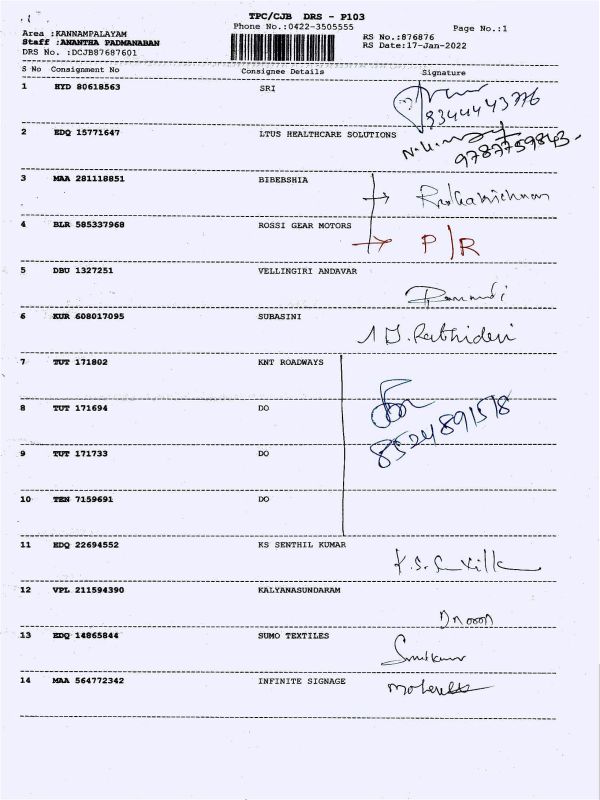 TPC/CJB DRS - P103
Phone No.:0422-3505555
Page No.:1
Area :KANNAMPALAYAM
RS No.:876876
Staff :ANANTHA PADMANABAN
RS Date:17-Jan-2022
DRS No. :DCJB87687601
S No Consignment No Consignee Details Signature
1 HYD 80618563 SRI
9344443776
2 EDQ 15771647 LTUS HEALTHCARE SOLUTIONS
9787759843-
3 MAA 281118851 BIBEBSHIA
4 BLR 585337968 ROSSI GEAR MOTORS P/R
5 DBU 1327251 VELLINGIRI ANDAVAR
6 KUR 608017095 SUBASINI
7 TUT 171802 KNT ROADWAYS
8 TUT 171694 DO
9 TUT 171733 DO
10 TEN 7159691 DO
11 EDQ 22694552 KS SENTHIL KUMAR
12 VPL 211594390 KALYANASUNDARAM
13 EDQ 14865844 SUMO TEXTILES
14 MAA 564772342 INFINITE SIGNAGE